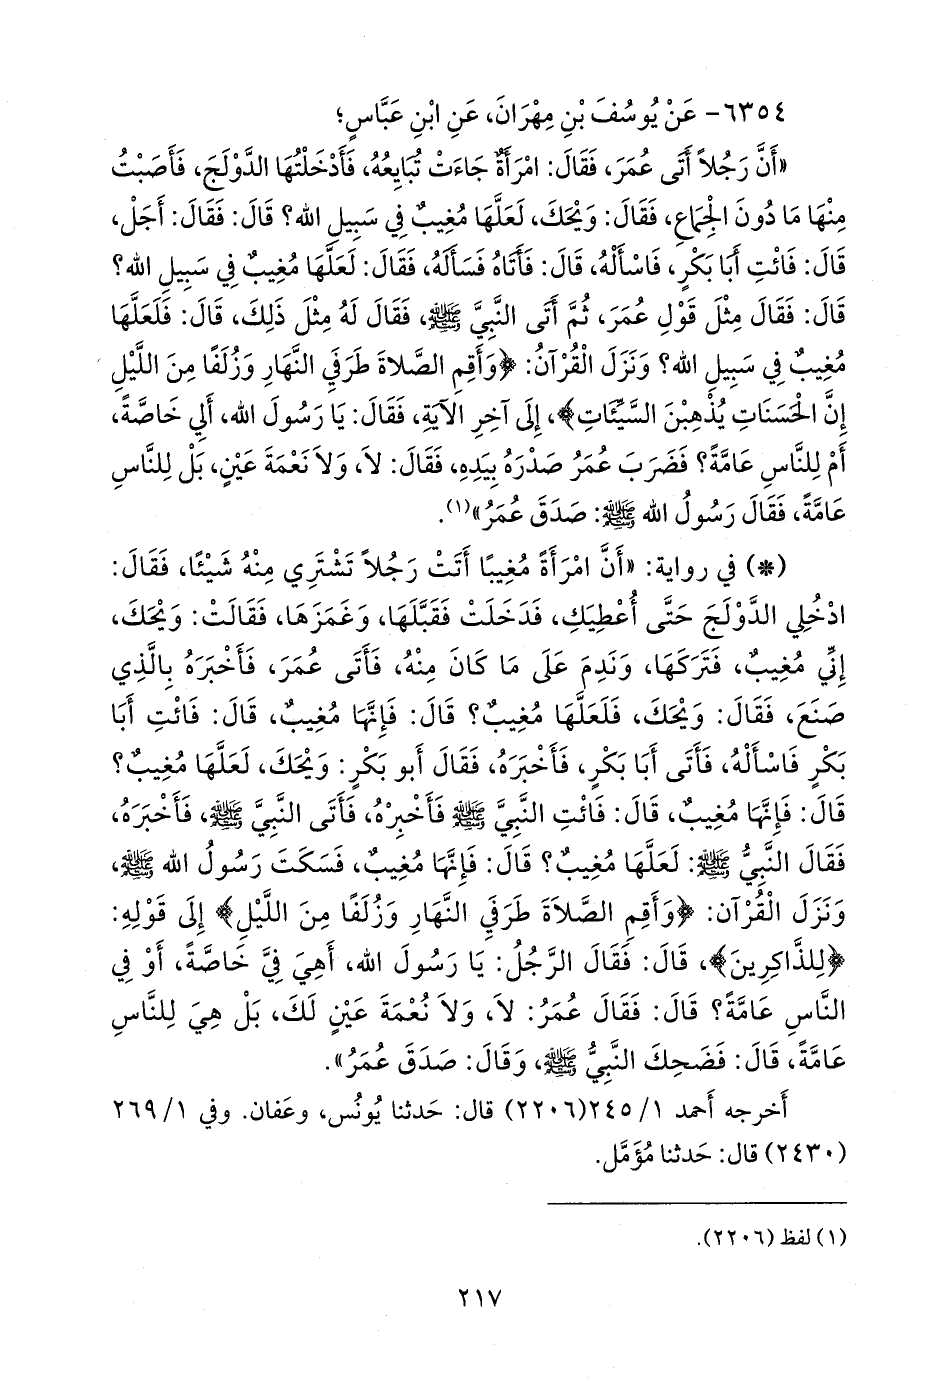 ٦٣٥٤- عَنْ يُوسُفَ بْنِ مِهْرَانَ، عَنِ ابْنِ عَبَّاسٍ؛
«أَنَّ رَجُلاً أَتَى عُمَرَ، فَقَالَ: امْرَأَةٌ جَاءَتْ تُبَايِعُهُ، فَأَدْخَلْتُهَا الدَّوْلَجَ، فَأَصَبْتُ
مِنْهَا مَا دُونَ الْجِمَاعِ، فَقَالَ: وَيْحَكَ، لَعَلَّهَا مُغِيبٌ فِي سَبِيلِ الله؟ قَالَ: فَقَالَ: أَجَلْ،
قَالَ: فَائْتِ أَبَا بَكْرٍ، فَاسْأَلْهُ، قَالَ: فَأَتَاهُ فَسَأَلَهُ، فَقَالَ: لَعَلَّهَا مُغِيبٌ فِي سَبِيلِ الله؟
قَالَ: فَقَالَ مِثْلَ قَوْلِ عُمَرَ، ثُمَّ أَتَى النَّبِيَّ ﷺ، فَقَالَ لَهُ مِثْلَ ذَلِكَ، قَالَ: فَلَعَلَّهَا
مُغِيبٌ فِي سَبِيلِ الله؟ وَنَزَلَ الْقُرْآنُ: ﴿وَأَقِمِ الصَّلاَةَ طَرَفَيِ النَّهَارِ وَزُلَفًا مِنَ اللَّيْلِ
إِنَّ الْحَسَنَاتِ يُذْهِبْنَ السَّيِّئَاتِ﴾، إِلَى آخِرِ الآيَةِ، فَقَالَ: يَا رَسُولَ الله، أَلِي خَاصَّةً،
أَمْ لِلنَّاسِ عَامَّةً؟ فَضَرَبَ عُمَرُ صَدْرَهُ بِيَدِهِ، فَقَالَ: لاَ، وَلاَ نَعْمَةَ عَيْنٍ، بَلْ لِلنَّاسِ
عَامَّةً، فَقَالَ رَسُولُ الله ﷺ: صَدَقَ عُمَرُ»(١).
(*) في رواية: «أَنَّ امْرَأَةً مُغِيبًا أَتَتْ رَجُلاً تَشْتَرِي مِنْهُ شَيْئًا، فَقَالَ:
ادْخُلِي الدَّوْلَجَ حَتَّى أُعْطِيَكِ، فَدَخَلَتْ فَقَبَّلَهَا، وَغَمَزَهَا، فَقَالَتْ: وَيْحَكَ،
إِنِّي مُغِيبٌ، فَتَرَكَهَا، وَنَدِمَ عَلَى مَا كَانَ مِنْهُ، فَأَتَى عُمَرَ، فَأَخْبَرَهُ بِالَّذِي
صَنَعَ، فَقَالَ: وَيْحَكَ، فَلَعَلَّهَا مُغِيبٌ؟ قَالَ: فَإِنَّهَا مُغِيبٌ، قَالَ: فَائْتِ أَبَا
بَكْرٍ فَاسْأَلْهُ، فَأَتَى أَبَا بَكْرٍ، فَأَخْبَرَهُ، فَقَالَ أَبو بَكْرٍ: وَيْحَكَ، لَعَلَّهَا مُغِيبٌ؟
قَالَ: فَإِنَّهَا مُغِيبٌ، قَالَ: فَائْتِ النَّبِيَّ ﷺ فَأَخْبِرْهُ، فَأَتَى النَّبِيَّ ﷺ، فَأَخْبَرَهُ،
فَقَالَ النَّبِيُّ ﷺ: لَعَلَّهَا مُغِيبٌ؟ قَالَ: فَإِنَّهَا مُغِيبٌ، فَسَكَتَ رَسُولُ الله ﷺ،
وَنَزَلَ الْقُرْآن: ﴿وَأَقِمِ الصَّلاَةَ طَرَفَيِ النَّهَارِ وَزُلَفًا مِنَ اللَّيْلِ﴾ إِلَى قَوْلِهِ:
﴿لِلذَّاكِرِينَ﴾، قَالَ: فَقَالَ الرَّجُلُ: يَا رَسُولَ الله، أَهِيَ فِيَّ خَاصَّةً، أَوْ فِي
النَّاسِ عَامَّةً؟ قَالَ: فَقَالَ عُمَرُ: لاَ، وَلاَ نُعْمَةَ عَيْنٍ لَكَ، بَلْ هِيَ لِلنَّاسِ
عَامَّةً، قَالَ: فَضَحِكَ النَّبِيُّ ﷺ، وَقَالَ: صَدَقَ عُمَرُ».
أَخرجه أَحمد ١/ ٢٤٥(٢٢٠٦) قال: حَدثنا يُونُس، وعَفان. وفي ١/ ٢٦٩
(٢٤٣٠) قال: حَدثنا مُؤَمَّل.
(١) لفظ (٢٢٠٦).
٢١٧